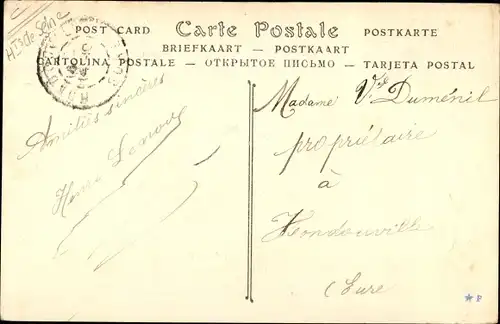 Hts de Seine
POST CARD Carte Postale POSTKARTE
BRIEFKAART — POSTKAART
CARTOLINA POSTALE — ОТКРЫТОЕ ПИСЬМО — TARJETA POSTAL
Amitiés sincères
Henri
Madame Vve Duménil
propriétaire
à
Hondouville
(Eure